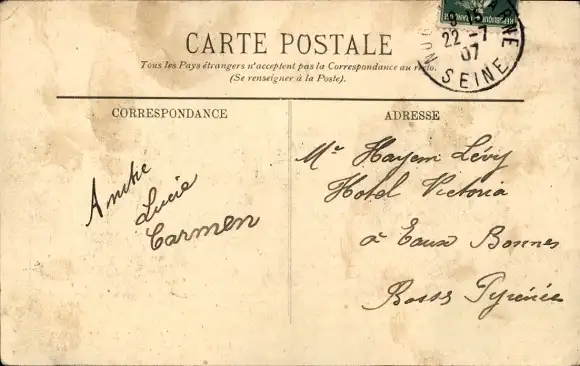 CARTE POSTALE
Tous les Pays étrangers n'acceptent pas la Correspondance au recto.
(Se renseigner à la Poste).
CORRESPONDANCE
Lucie
Carmen
ADRESSE
Mr Hayem Lévy
Hotel Victoria
à Eaux Bonnes
Basses Pyrénées
RÉPUBLIQUE FRANÇAISE
22 -7
07
MARNE
SEINE